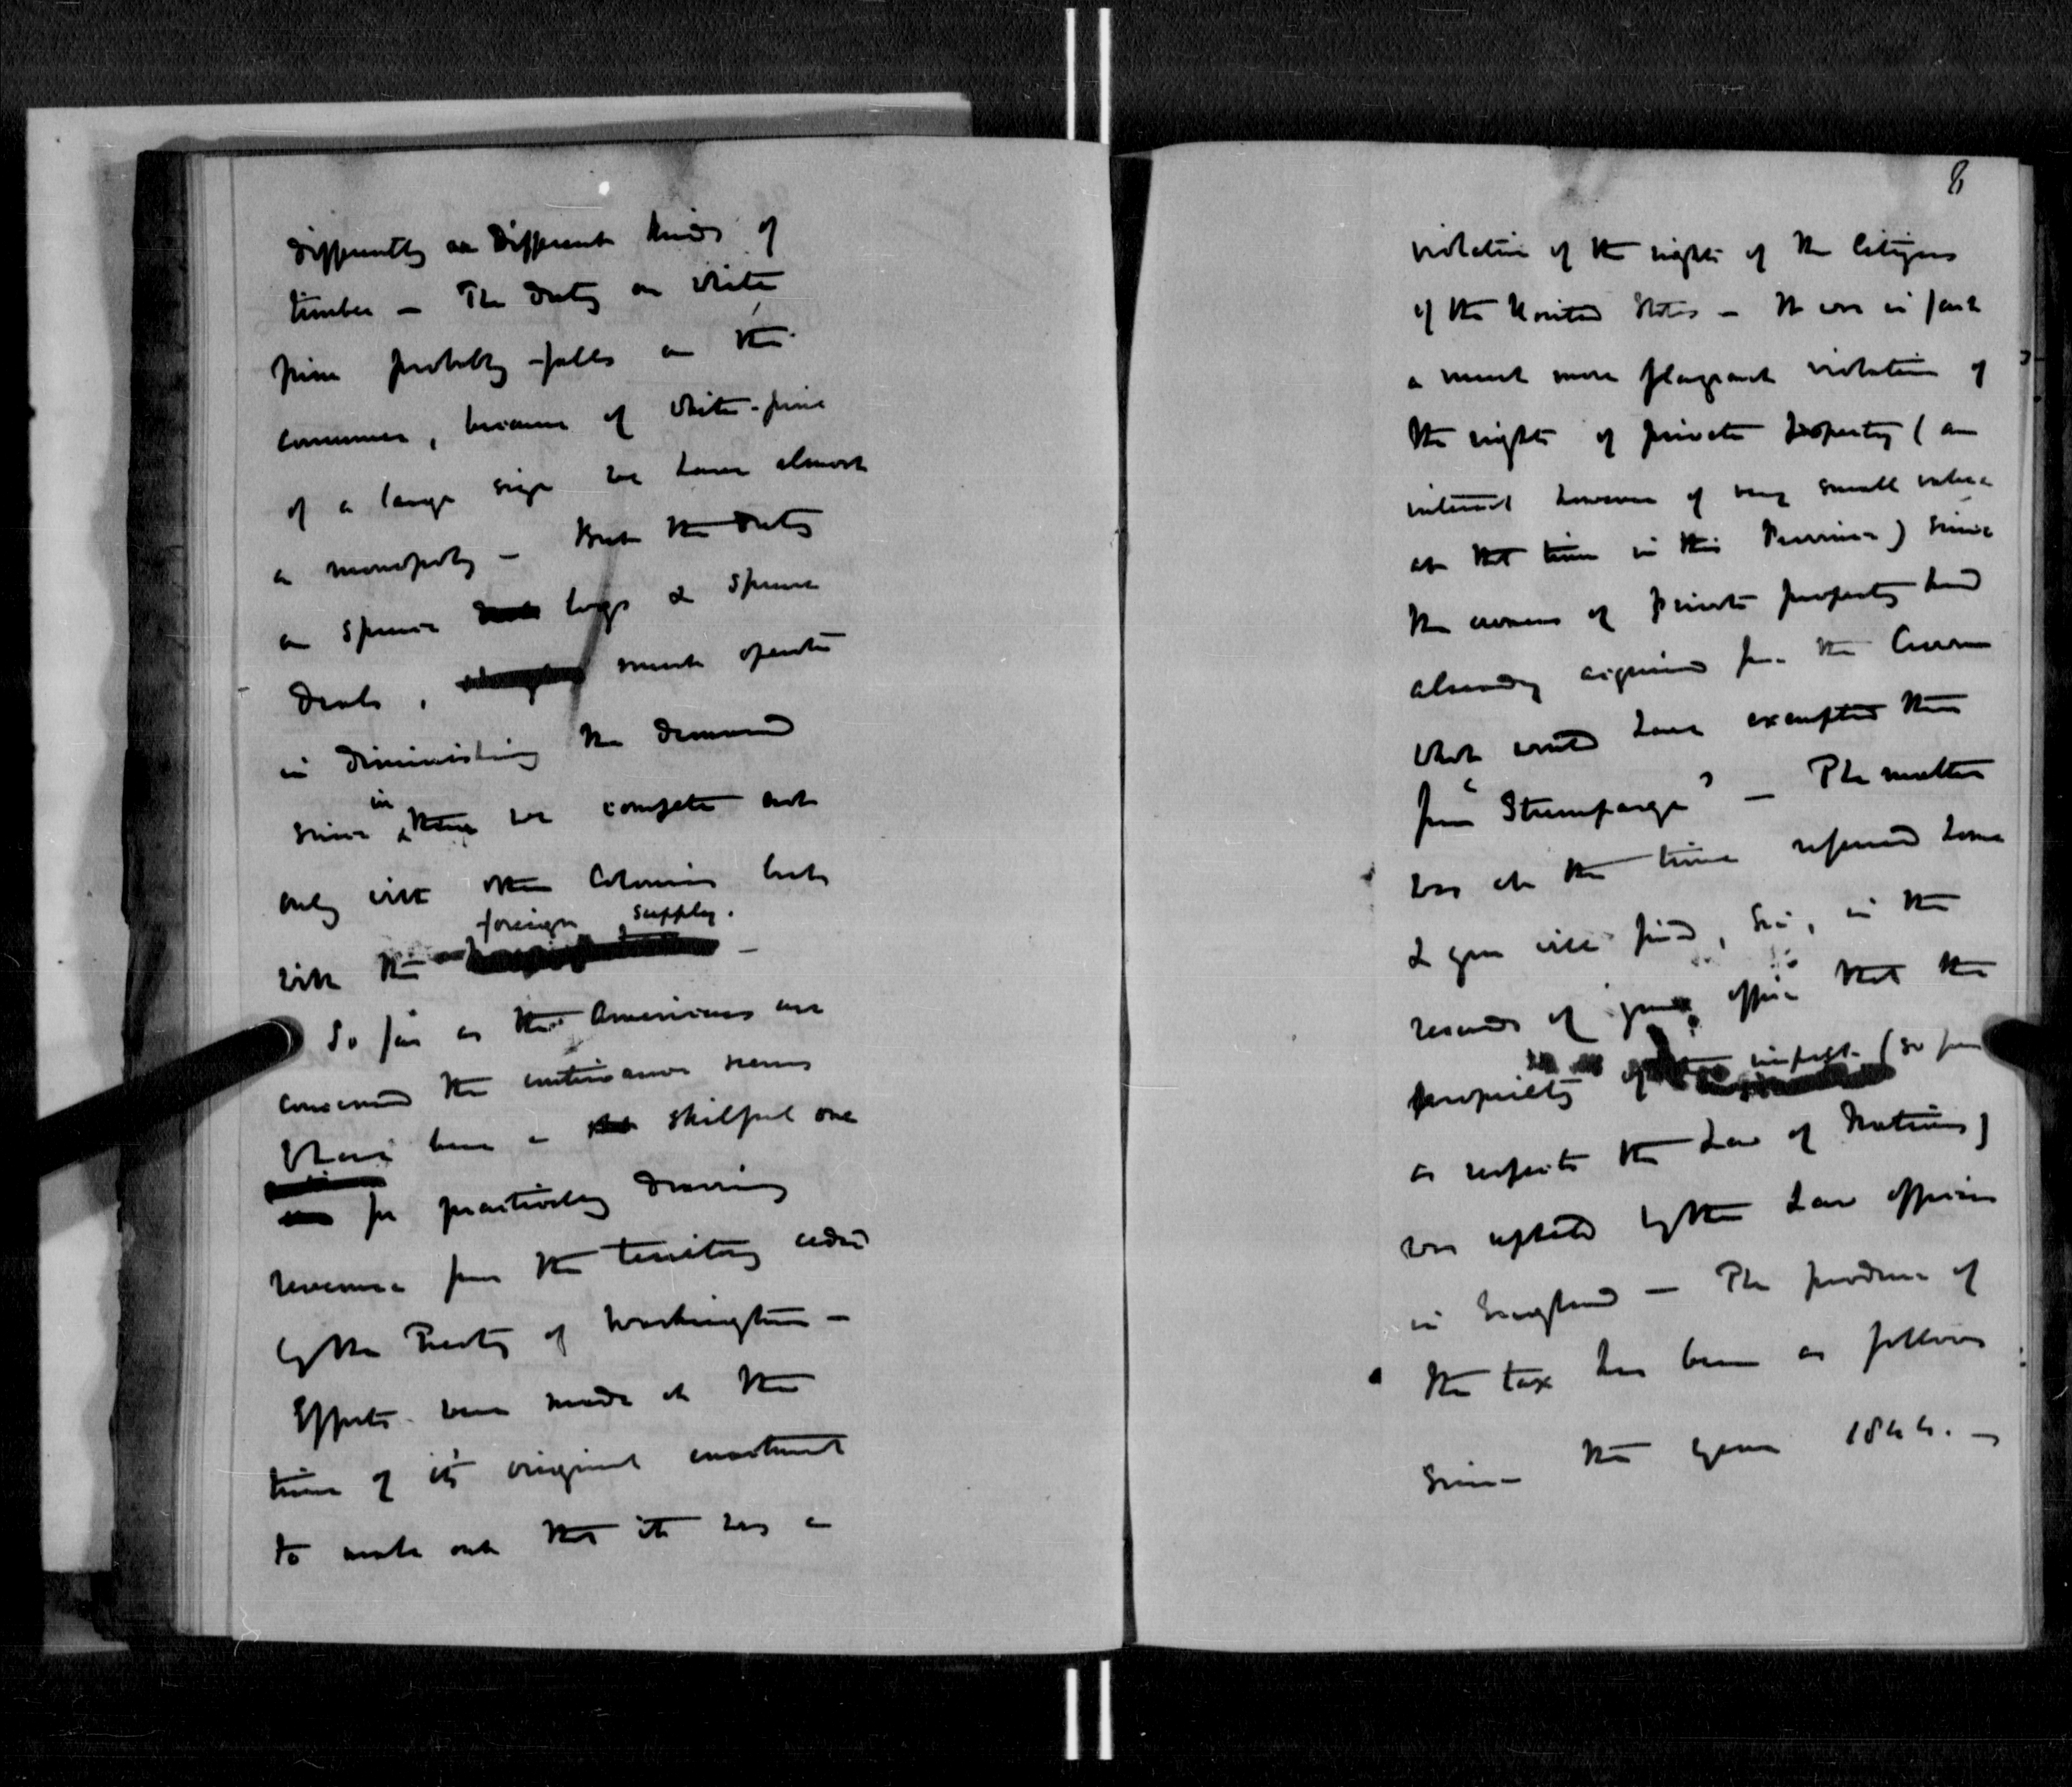 differently on different kinds of
timber – The duty on white
pine probably falls on the
consumer, because of white-pine
of a large size we have almost
a monopoly – But the duty
on spruce logs & spruce
deals, must operate
in diminishing the demand
since in these we compete not
only with other Colonies but
foreign supply.
with the –
So far as the Americans are
concerned the contrivance seems
to have been a skilful one
for practically drawing
revenue from the territory ceded
by the Treaty of Washington –
Efforts were made at the
time of it's original enactment
to make out that it was a
8
violation of the rights of the Citizens
of the United States – It was in fact
a much more flagrant violation of
the rights of private property (an
interest however of very small value
at that time in this Province) since
the owners of private property had
already acquired from the Crown
what would have exempted them
from "Stumpage" – The matter
was at the time referred home
& you will find, Sir, in the
records of your office that the
propriety of the impost (so far
as respects the Law of Nations)
was upheld by the Law officers
in England – The produce of
the tax has been as follows
since the year 1844. –